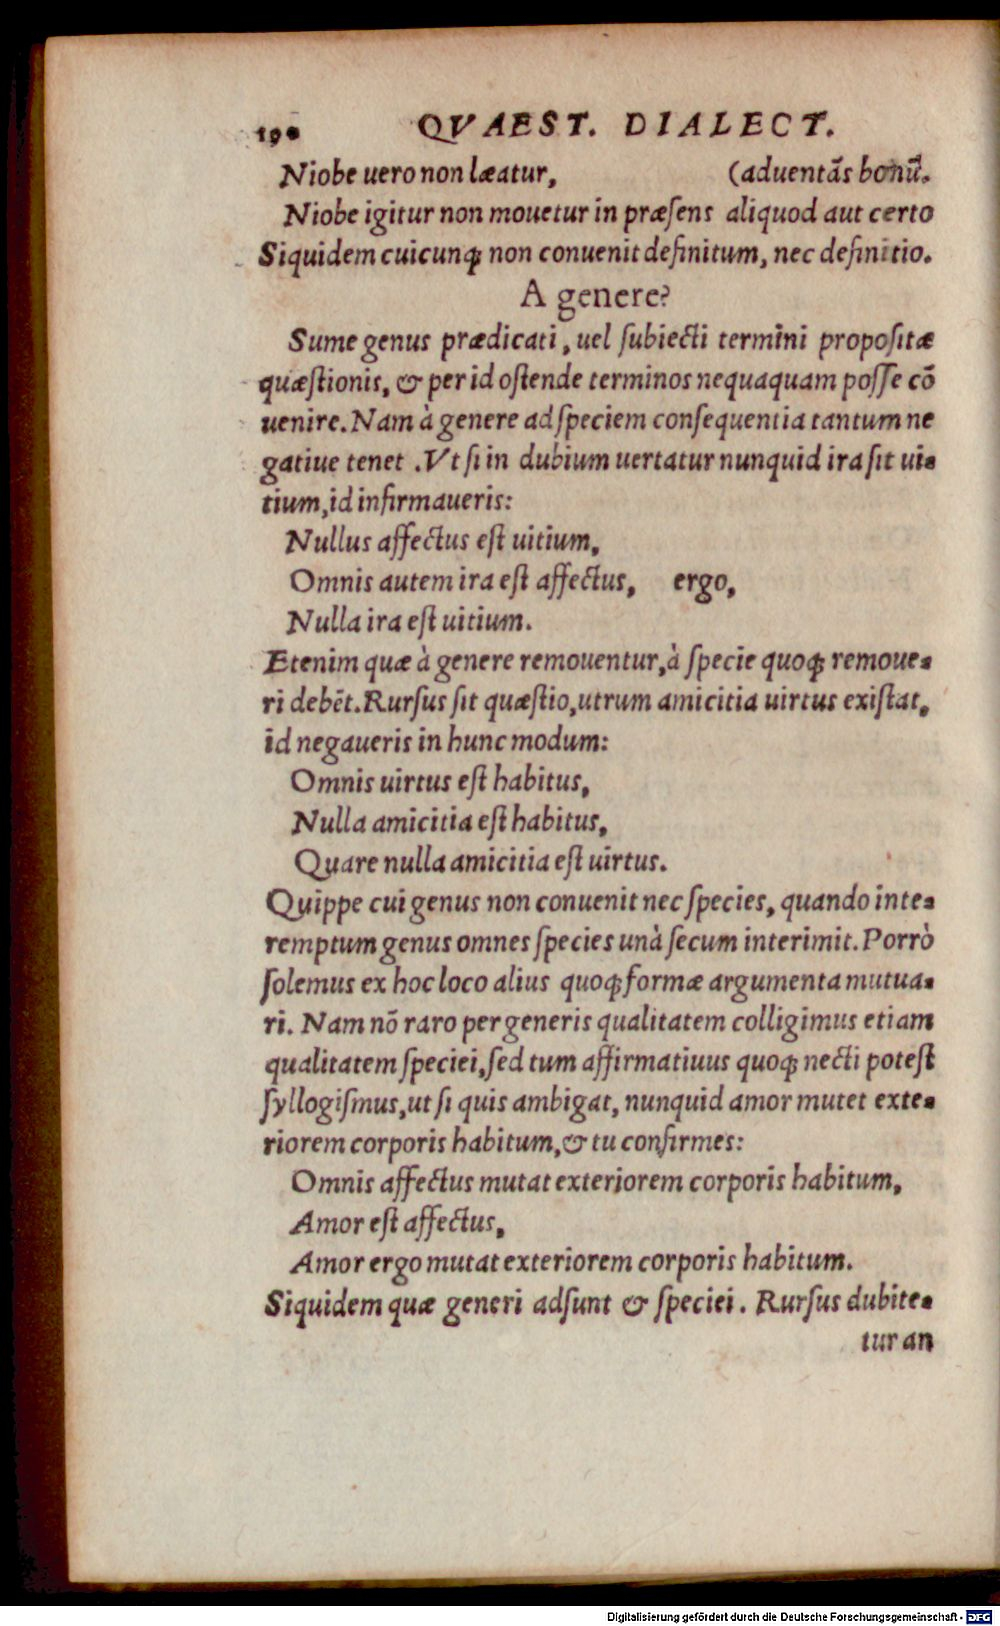 190 QVAEST. DIALECT.
Niobe uero non læatur, (aduentãs bonũ.
Niobe igitur non mouetur in præsens aliquod aut certo
Siquidem cuicunq; non conuenit definitum, nec definitio.
A genere?
Sume genus prædicati, uel ſubiecti termini propoſitæ
quæſtionis, & per id oſtende terminos nequaquam poſſe cõ
uenire. Nam à genere ad ſpeciem conſequentia tantum ne
gatiue tenet .Vt ſi in dubium uertatur nunquid ira ſit ui-
tium, id infirmaueris:
Nullus affectus eſt uitium,
Omnis autem ira eſt affectus, ergo,
Nulla ira eſt uitium.
Etenim quæ à genere remouentur, à ſpecie quoq; remoue-
ri debẽt. Rurſus ſit quæſtio, utrum amicitia uirtus exiſtat,
id negaueris in hunc modum:
Omnis uirtus eſt habitus,
Nulla amicitia eſt habitus,
Quare nulla amicitia eſt uirtus.
Quippe cui genus non conuenit nec ſpecies, quando inte-
remptum genus omnes ſpecies unà ſecum interimit. Porrò
ſolemus ex hoc loco alius quoq; formæ argumenta mutua-
ri. Nam nõ raro per generis qualitatem colligimus etiam
qualitatem ſpeciei, ſed tum affirmatiuus quoq; necti poteſt
ſyllogiſmus, ut ſi quis ambigat, nunquid amor mutet exte-
riorem corporis habitum, & tu confirmes:
Omnis affectus mutat exteriorem corporis habitum,
Amor eſt affectus,
Amor ergo mutat exteriorem corporis habitum.
Siquidem quæ generi adſunt & ſpeciei. Rurſus dubite-
tur an
Digitalisierung gefördert durch die Deutsche Forschungsgemeinschaft - DFG